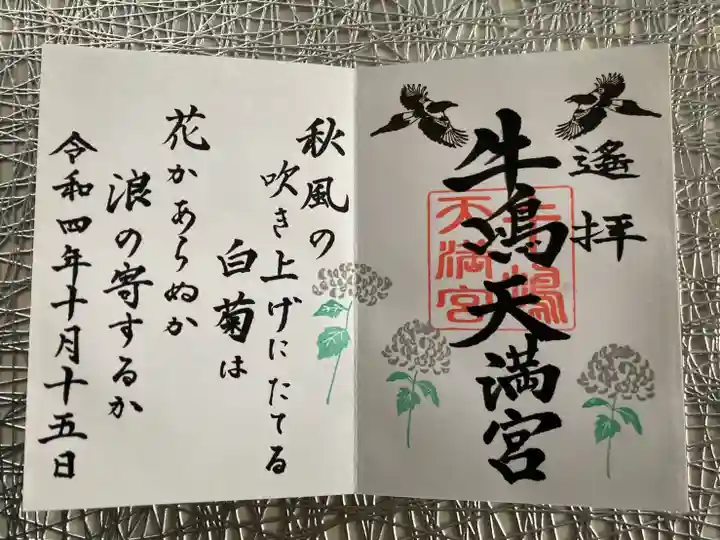 遙拝
牛嶋天満宮
牛嶋
天満宮
秋風の
吹き上げにたてる
白菊は
花かあらぬか
浪の寄するか
令和四年十月十五日